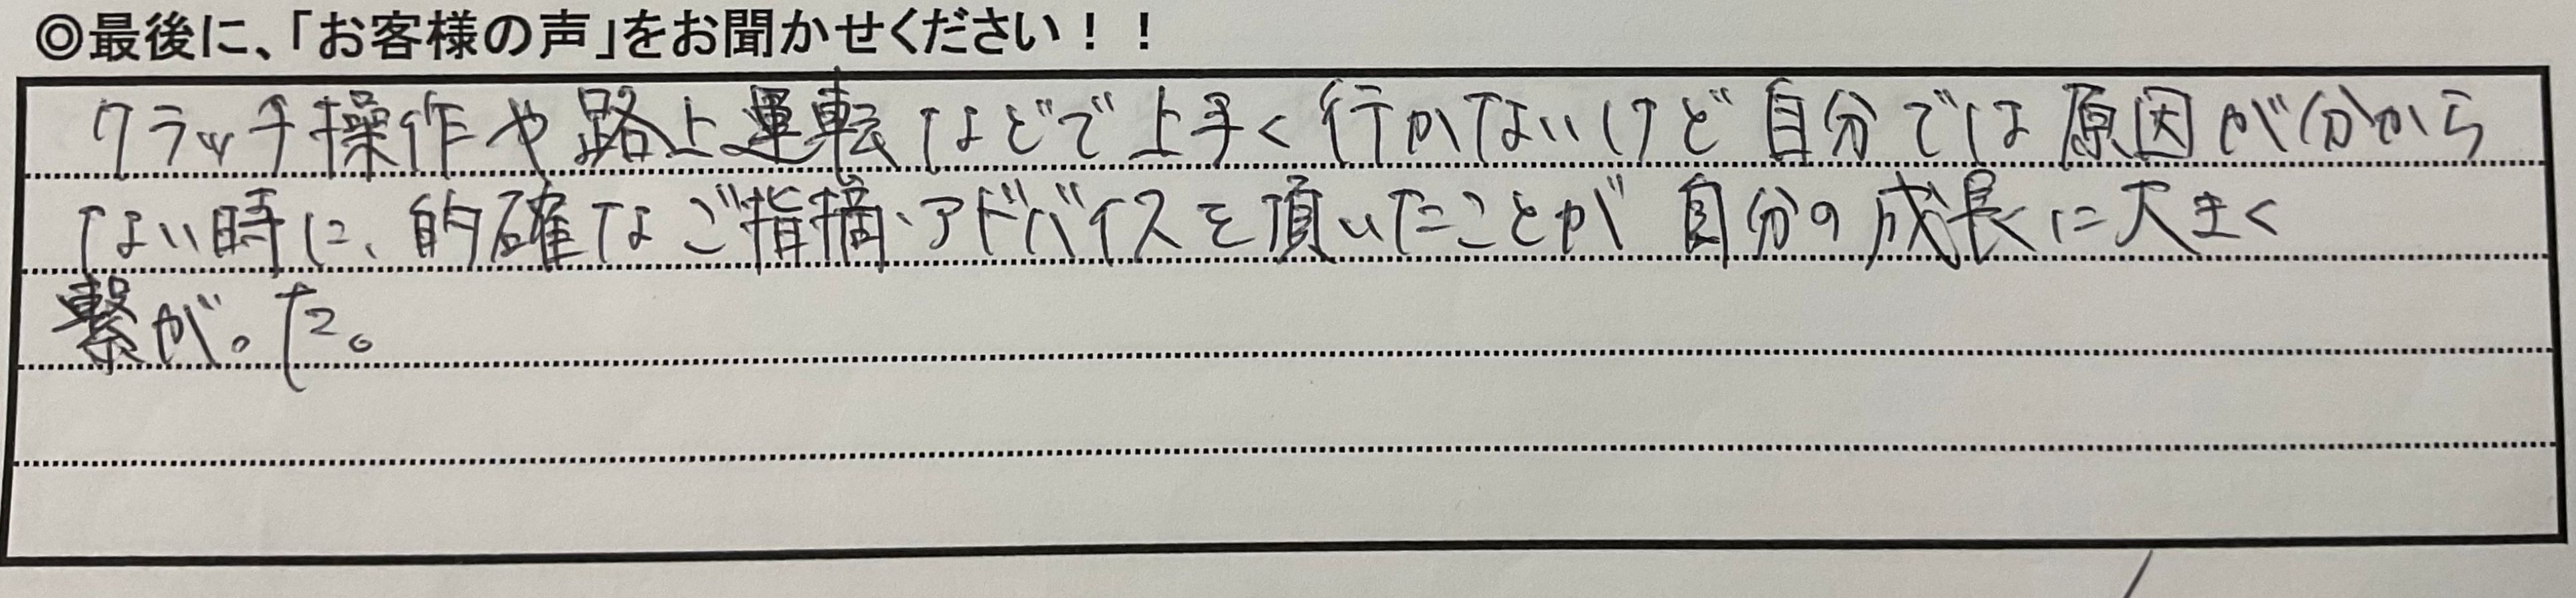 ◎最後に、「お客様の声」をお聞かせください！！
クラッチ操作や路上運転などで上手く行かないけど自分では原因が分から
ない時に、的確なご指摘・アドバイスを頂いたことが自分の成長に大きく
繋がった。